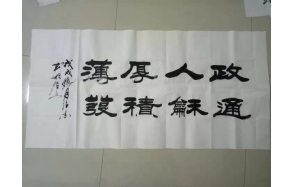 政通
人龢
厚積
薄發
戊戌